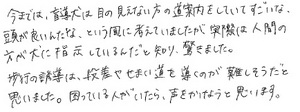 今までは、盲導犬は目の見えない方の道案内をしていてすごいな、
頭が良いんだな、という風に考えていましたが実際は人間の
方が犬に指示しているんだと知り、驚きました。
歩行の誘導は、段差やせまい道を導くのが難しそうだと
思いました。困っている人がいたら、声をかけようと思います。